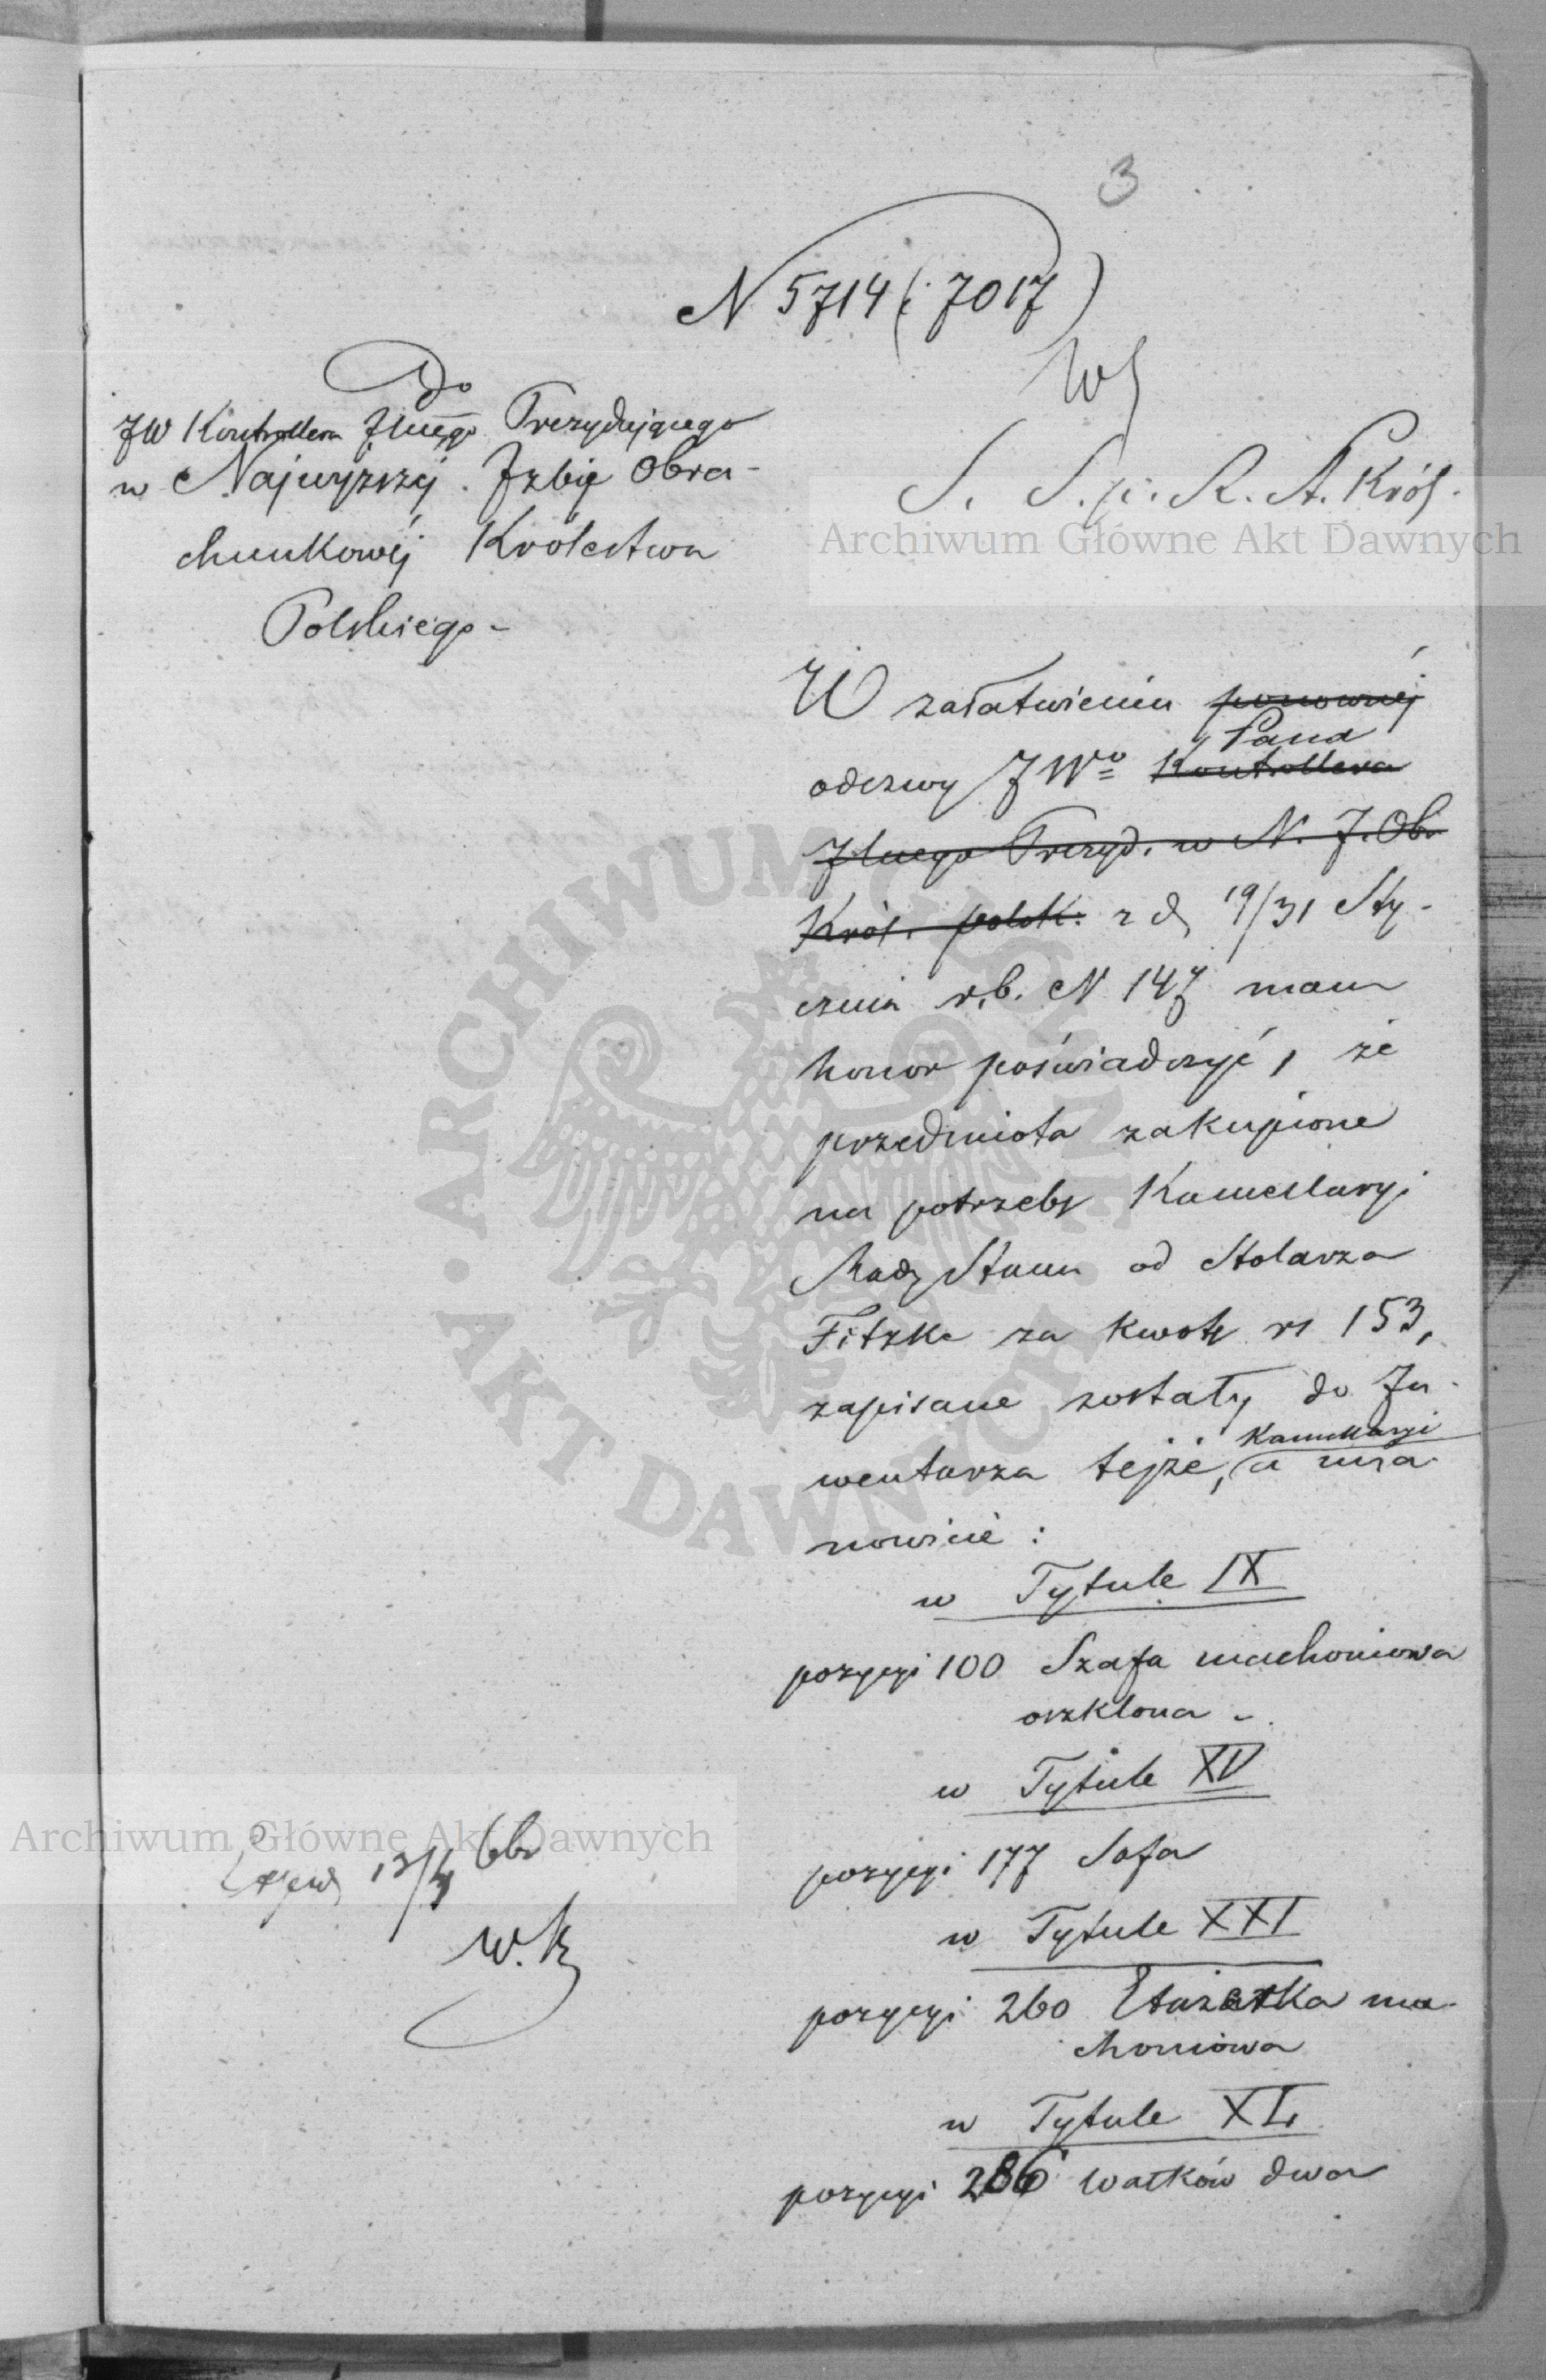 3
N 5714 (: 7017)
Do
JW Kontrollera Jlnego Prezydującego
w Najwyższej Izbie Obra-
chunkowéj Królestwa
Polskiego -
S. S. p. R. A. Król.
W załatwieniu ponownéj
Pana
odezwy JWo Kontrollera
Jlnego Prezyd. w N. J. Obr
Król. polsk. z d. 19/31 Sty-
cznia r.b. N 147 mam
honor poświadczyć, że
przedmiota zakupione
na potrzeby Kancellaryi
Rady Stanu od Stolarza
Fitzke za kwotę rs 153,
zapisane zostały do In-
Kancellaryi
wentarza tejże, a mia-
nowicie :
w Tytule IX
pozycyi 100 Szafa machoniowa
oszklona -
w Tytule XV
pozycyi 177 Sofa
w Tytule XXI
pozycyi 260 Etażerka ma-
choniowa
w Tytule XL
pozycyi 286 Wałków dwa
W. K
Archiwum Główne Akt Dawnych
Archiwum Główne Akt Dawnych
ARCHIWUM GŁÓWNE AKT DAWNYCH